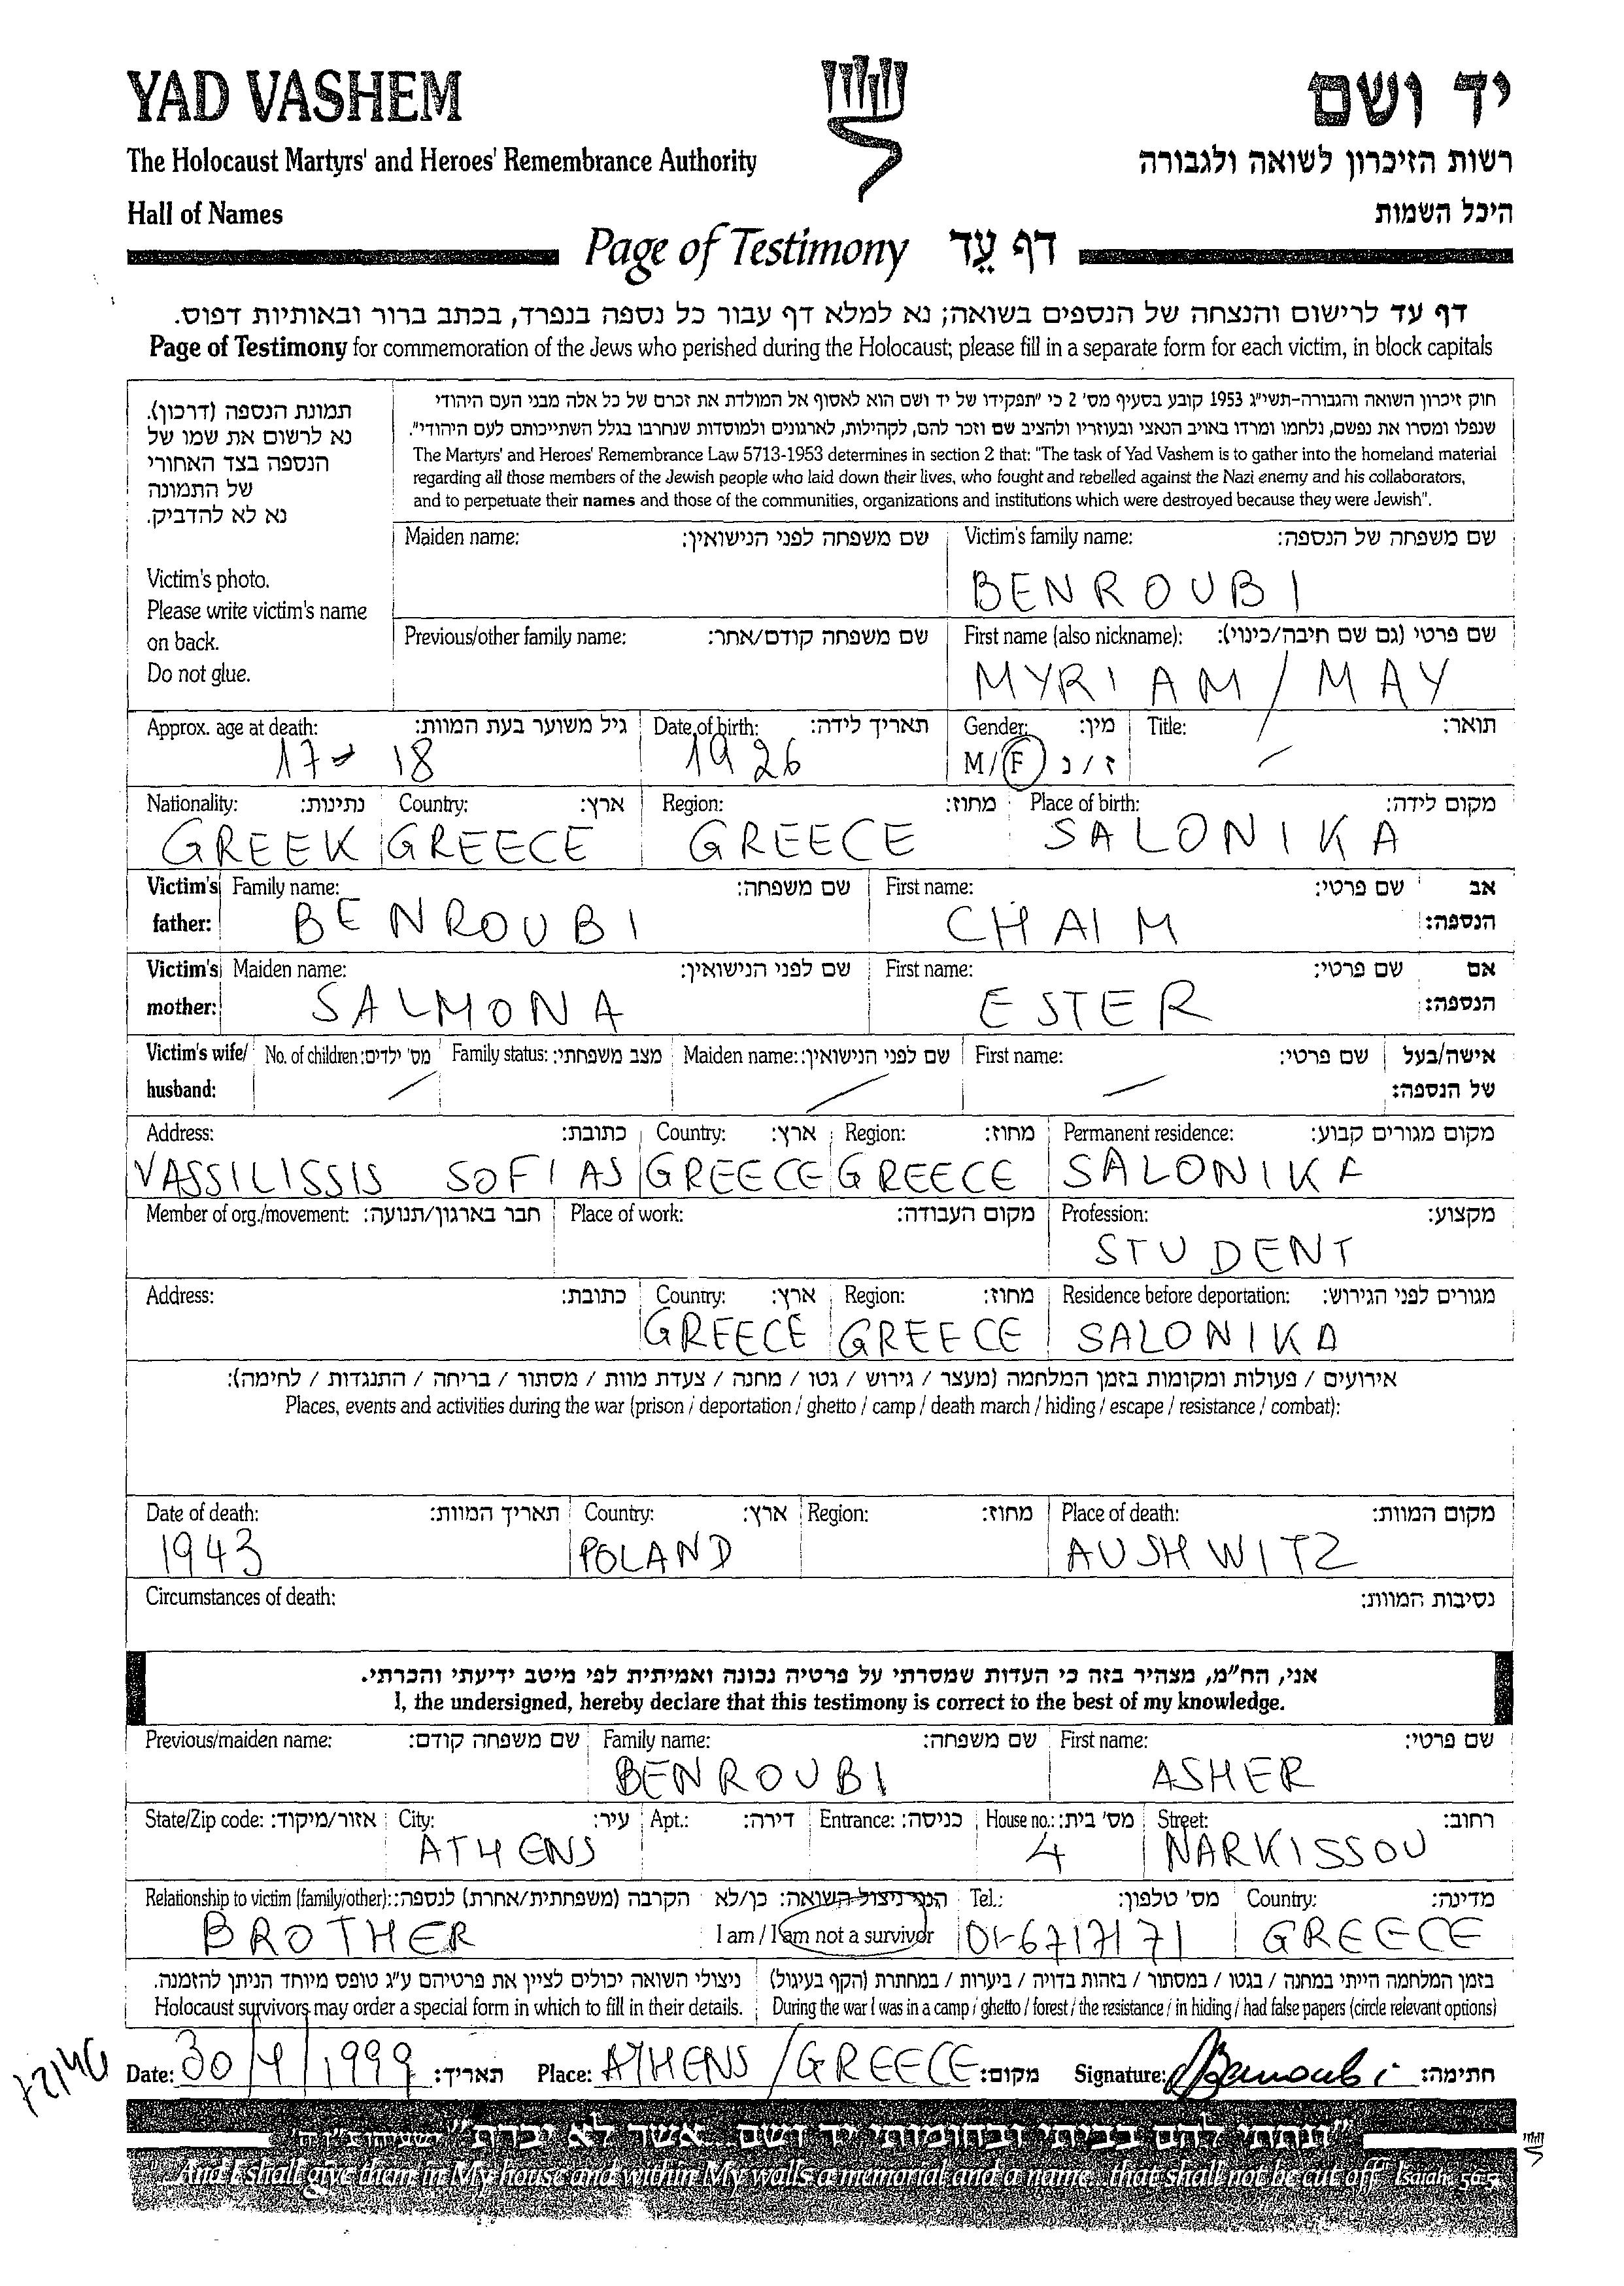 YAD VASHEM
יד ושם
The Holocaust Martyrs' and Heroes' Remembrance Authority
רשות הזיכרון לשואה ולגבורה
Hall of Names
היכל השמות
Page of Testimony דף עֵד
דף עד לרישום והנצחה של הנספים בשואה; נא למלא דף עבור כל נספה בנפרד, בכתב ברור ובאותיות דפוס.
Page of Testimony for commemoration of the Jews who perished during the Holocaust; please fill in a separate form for each victim, in block capitals
תמונת הנספה (דרכון).
נא לרשום את שמו של
הנספה בצד האחורי
של התמונה
נא לא להדביק.
Victim's photo.
Please write victim's name
on back.
Do not glue.
חוק זיכרון השואה והגבורה-תשי"ג 1953 קובע בסעיף מס' 2 כי "תפקידו של יד ושם הוא לאסוף אל המולדת את זכרם של כל אלה מבני העם היהודי
שנפלו ומסרו את נפשם, נלחמו ומרדו באויב הנאצי ובעוזריו ולהציב שם וזכר להם, לקהילות, לארגונים ולמוסדות שנחרבו בגלל השתייכותם לעם היהודי".
The Martyrs' and Heroes' Remembrance Law 5713-1953 determines in section 2 that: "The task of Yad Vashem is to gather into the homeland material
regarding all those members of the Jewish people who laid down their lives, who fought and rebelled against the Nazi enemy and his collaborators,
and to perpetuate their names and those of the communities, organizations and institutions which were destroyed because they were Jewish".
Maiden name: שם משפחה לפני הנישואין: Victim's family name: שם משפחה של הנספה:
BENROUBI
Previous/other family name: שם משפחה קודם/אחר: First name (also nickname): שם פרטי (גם שם חיבה/כינוי):
MYRIAM / MAY
Approx. age at death: גיל משוער בעת המוות: Date of birth: תאריך לידה: Gender: מין: Title: תואר:
17-18 1926 M/F ז/נ
Nationality: נתינות: Country: ארץ: Region: מחוז: Place of birth: מקום לידה:
GREEK GREECE GREECE SALONIKA
Victim's Family name: שם משפחה: First name: שם פרטי: אב
father: BENROUBI CHAIM הנספה:
Victim's Maiden name: שם לפני הנישואין: First name: שם פרטי: אם
mother: SALMONA ESTER הנספה:
Victim's wife/ No. of children: מס' ילדים: Family status: מצב משפחתי: Maiden name: שם לפני הנישואין: First name: שם פרטי: אישה/בעל
husband: של הנספה:
Address: כתובת: Country: ארץ: Region: מחוז: Permanent residence: מקום מגורים קבוע:
VASSILISSIS SOFIAS GREECE GREECE SALONIKA
Member of org./movement: חבר בארגון/תנועה: Place of work: מקום העבודה: Profession: מקצוע:
STUDENT
Address: כתובת: Country: ארץ: Region: מחוז: Residence before deportation: מגורים לפני הגירוש:
GREECE GREECE SALONIKA
אירועים / פעולות ומקומות בזמן המלחמה (מעצר / גירוש / גטו / מחנה / צעדת מוות / מסתור / בריחה / התנגדות / לחימה):
Places, events and activities during the war (prison / deportation / ghetto / camp / death march / hiding / escape / resistance / combat):
Date of death: תאריך המוות: Country: ארץ: Region: מחוז: Place of death: מקום המוות:
1943 POLAND AUSHWITZ
Circumstances of death: נסיבות המוות:
אני, הח"מ, מצהיר בזה כי העדות שמסרתי על פרטיה נכונה ואמיתית לפי מיטב ידיעתי והכרתי.
I, the undersigned, hereby declare that this testimony is correct to the best of my knowledge.
Previous/maiden name: שם משפחה קודם: Family name: שם משפחה: First name: שם פרטי:
BENROUBI ASHER
State/Zip code: אזור/מיקוד: City: עיר: Apt.: דירה: Entrance: כניסה: House no.: מס' בית: Street: רחוב:
ATHENS 4 NARKISSOU
Relationship to victim (family/other): הקרבה (משפחתית/אחרת) לנספה: הנני ניצול השואה: כן/לא Tel.: מס' טלפון: Country: מדינה:
BROTHER I am / I am not a survivor 01-6717171 GREECE
ניצולי השואה יכולים לציין את פרטיהם ע"ג טופס מיוחד הניתן להזמנה. בזמן המלחמה הייתי במחנה / בגטו / במסתור / בזהות בדויה / ביערות / במחתרת (הקף בעיגול)
Holocaust survivors may order a special form in which to fill in their details. During the war I was in a camp / ghetto / forest / the resistance / in hiding / had false papers (circle relevant options)
Date: 30/4/1999 תאריך: Place: ATHENS / GREECE מקום: Signature: Benroubi חתימה:
"ונתתי להם בביתי ובחומותי יד ושם...אשר לא יכרת"
...And I shall give them in My house and within My walls a memorial and a name...that shall not be cut off" Isaiah 56:5